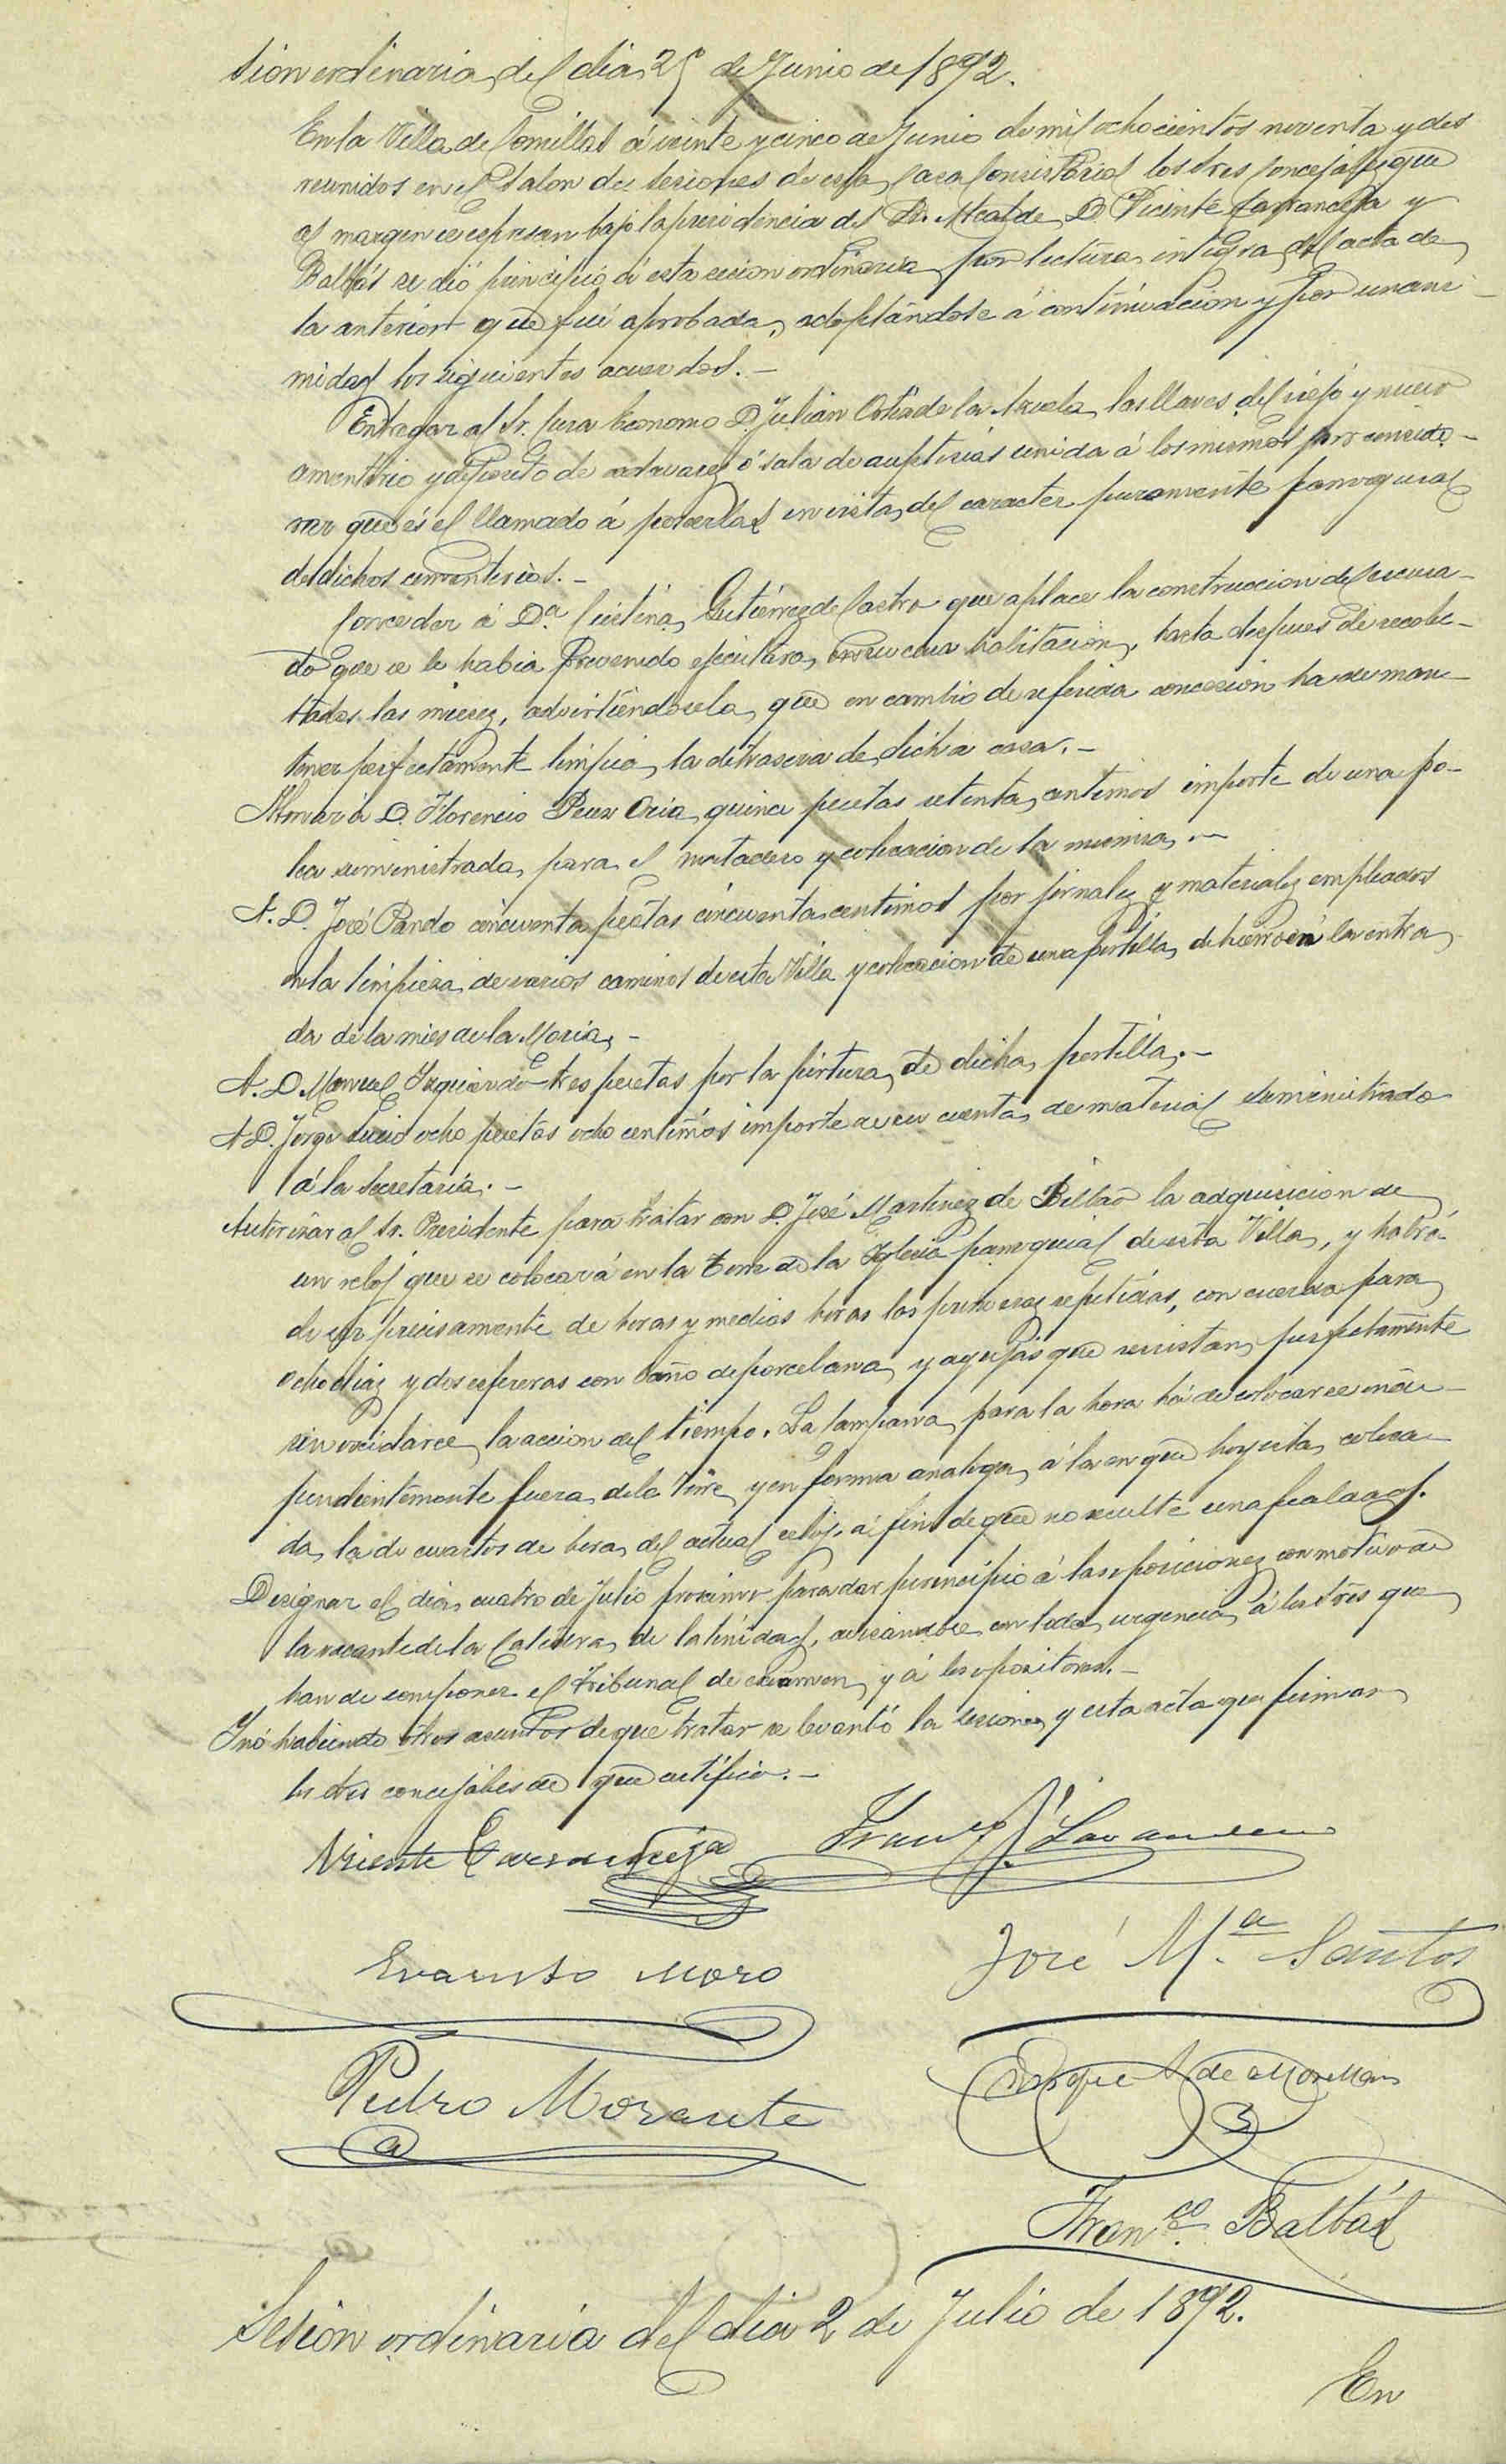 sion ordinaria del dia 25 de Junio de 1892.
En la Villa de Comillas á veinte y cinco de Junio de mil ochocientos noventa y dos
reunidos en el Salon de sesiones de esta Casa Consistorial los Sres Concejales que
al margen se espresan bajo la presidencia del Sr. Alcalde D Vicente Carranceja y
Balbás se dió principio á esta sesion ordinaria por lectura integra del acta de
la anterior que fué aprobada, adoptándose á continuacion y por unani-
midad los siguientes acuerdos.-
Entregar al Sr. Cura Economo D. Julián Ortiz de la las llaves del viejo y nuevo
cementerio y deposito de cadaveres ó sala de autopsias unida á los mismos por conside-
rar que és el llamado á poseerlas en vista del caracter puramente parroquial
de dichos cementerios.-
Conceder á D.ª Cristina Gutiérrez de Castro que aplace la construccion del escusa-
do que se le habia prevenido ejecutara en su casa habitacion, hasta despues de recolec-
tadas las mieses, advirtiéndosela que en cambio de referida concesion ha de man-
tener perfectamente limpia la detrasera de dicha casa.-
Abonar á D. Florencio Perez Oria quince pesetas setenta centimos importe de una po-
lea suministrada para el matadero y colocacion de la misma.-
A. D. José Pando cincuenta pesetas cincuenta centimos por jornales y materiales empleados
en la limpieza de varios caminos de esta Villa y colocacion de una portilla de hierro en la entra
da de la mies de la Moria.-
A. D. Manuel Izquierdo tres pesetas por la pintura de dicha portilla.-
A D. Jorge Lucio ocho pesetas ocho centimos importe de su cuenta de material suministrado
á la Secretaria.-
Autorizar al Sr. Presidente para tratar con D. José Martinez de Bilbao la adquisicion de
un reloj que se colocará en la torre de la Iglesia parroquial de esta Villa, y habrá
de ser precisamente de horas y medias horas las primeras repetidas, con cuerda para
ocho dias y dos esferas con baño de porcelana y agujas que resistan perfectamente
sin oxidarse la accion del tiempo. La campana para la hora há de colocarse inde-
pendientemente fuera de la torre y en forma analoga á la en que hoy esta coloca-
da la de cuartos de hora del actual reloj, á fin de que no resulte una fealdad.
Designar el dia cuatro de Julio proximo para dar principio á las oposiciones con motivo de
la vacante de la Catedra de latinidad, avisándose con toda urgencia á los Sres que
han de componer el Tribunal de examen y á los opositores.-
Y nó habiendo otros asuntos de que tratar se levantó la sesion y esta acta que firman
los Sres concejales de que certifico.-
Vicente Carranceja
Evaristo Moro
José M.ª Santos
Pedro Morante
Fran.co Balbás
Sesion ordinaria del dia 2 de Julio de 1892.
En